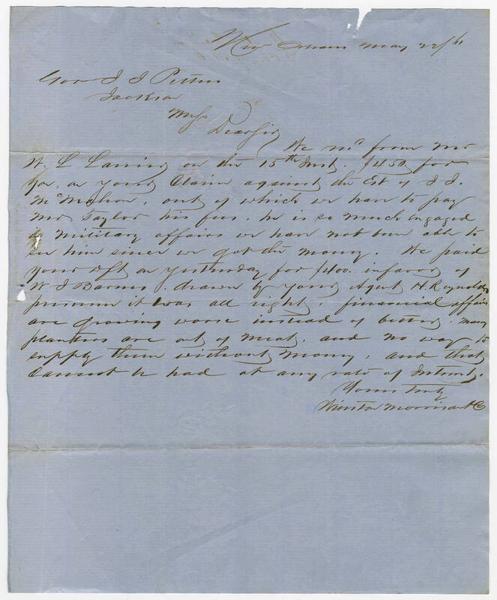 New Orleans May 22/61
Gov J J Pettus
Jackson
Miss
Dear Sir
We recd from Mr
W. L. Lanier on the 15th Inst. $450 for
you, on your Claim against the Est of J. J.
McMahon, out of which we have to pay
Mr Taylor his fees. he is so much engaged
in military affairs we have not been able to
see him since we got the money. We paid
your dft on yesterday for $400. in favor of
W J Barnes drawn by your Agent H Reynolds
presume it was all right. financial affairs
are growing worse instead of better. many
planters are out of meat, and no way to
supply them without money, and that
cannot be had at any rate of Interest.
Yours truly
Morrison & Co